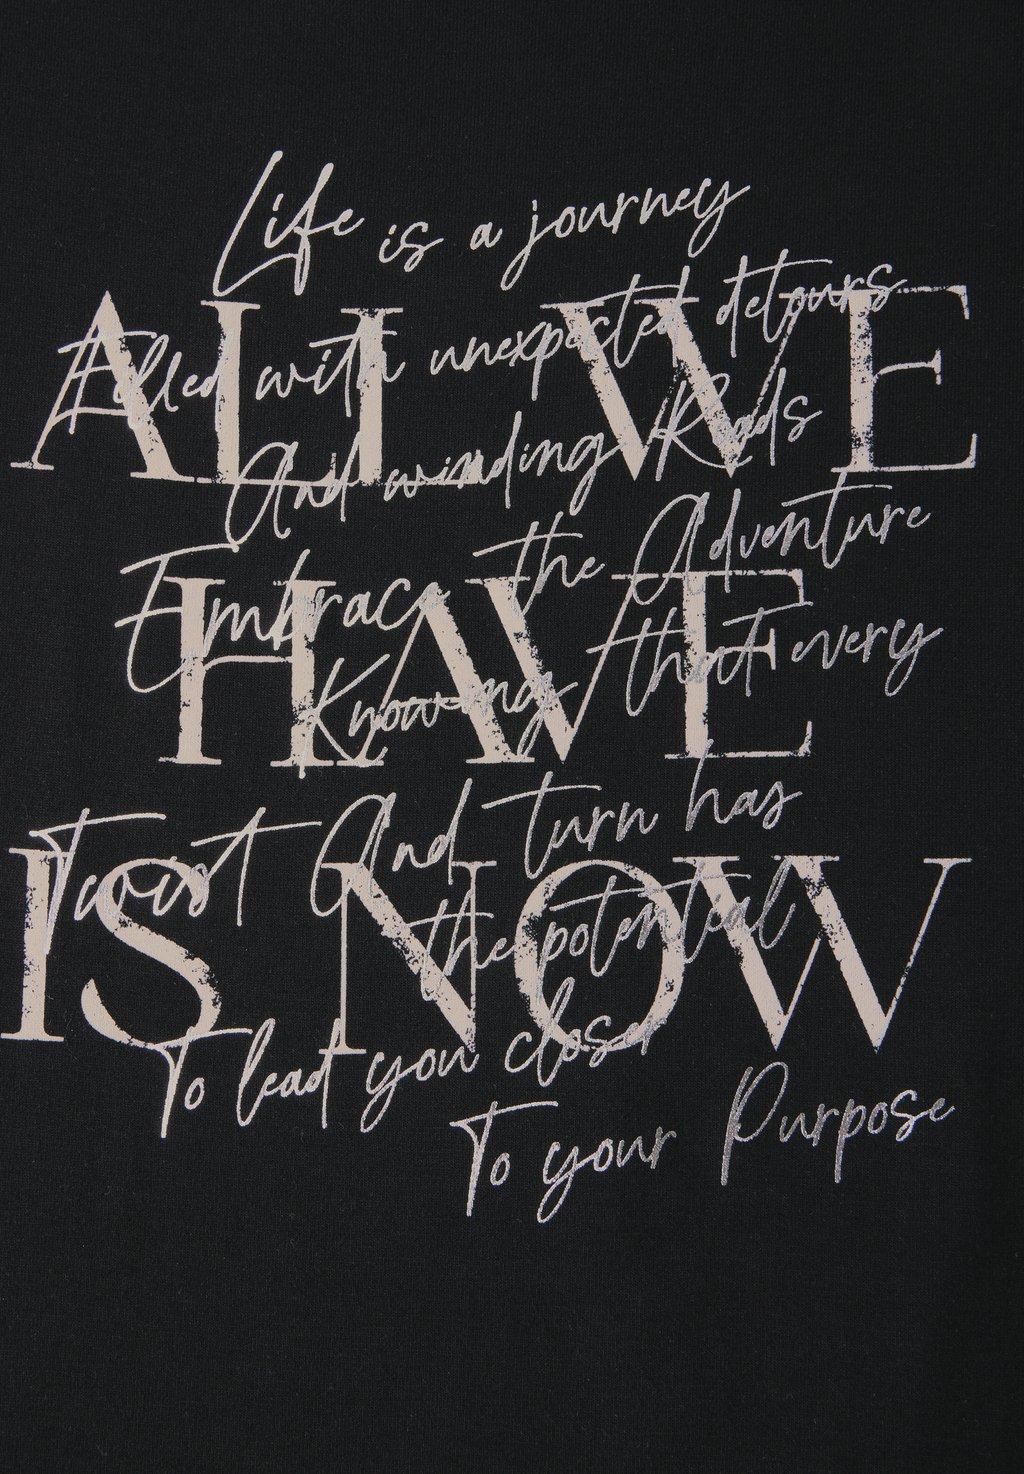 Life is a journey
ALL WE
Filled with unexpected detours
And winding Roads
Embrace the Adventure
HAVE
Knowing that every
Twist And turn has
IS NOW
the potential
To lead you closer
To your Purpose